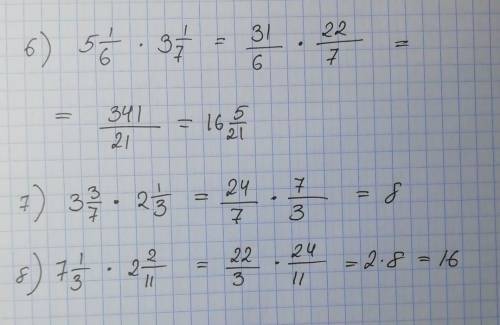 6) 5 1/6 · 3 1/7 = 31/6 · 22/7 =
= 341/21 = 16 5/21
7) 3 3/7 · 2 1/3 = 24/7 · 7/3 = 8
8) 7 1/3 · 2 2/11 = 22/3 · 24/11 = 2·8 = 16